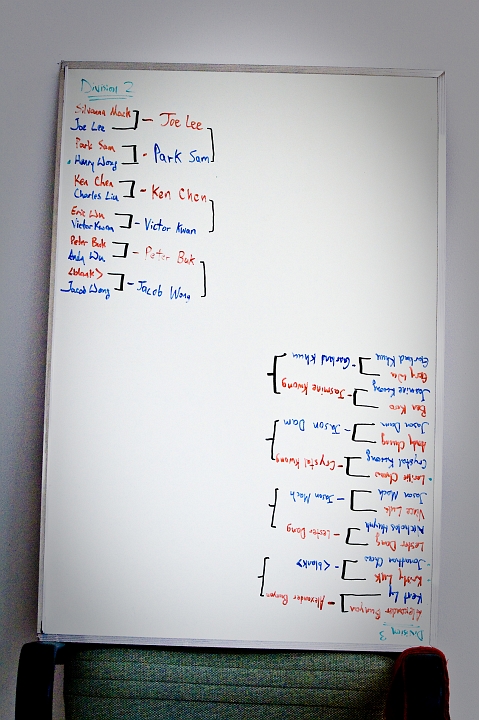 Division 2
Silvanna Mack
Joe Lee
Joe Lee
Park Sam
Henry Wong
Park Sam
Ken Chen
Charles Liu
Ken Chen
Eric Wu
Victor Kwan
Victor Kwan
Peter Buk
Andy Wu
Peter Buk
<blank>
Jacob Wong
Jacob Wong
Division 3
Alexander Bunyan
Kent Ly
Alexander Bunyan
Kristy Luk
Jonathan Chau
<blank>
Lester Dang
Nicholas Huynh
Lester Dang
Vince Luk
Jason Mach
Jason Mach
Chau
Crystal Kwong
Crystal Kwong
Andy Chung
Jason Dam
Jason Dam
Ben Koo
Jasmine Kwong
Jasmine Kwong
Gary Wu
Garland Khuu
Garland Khuu